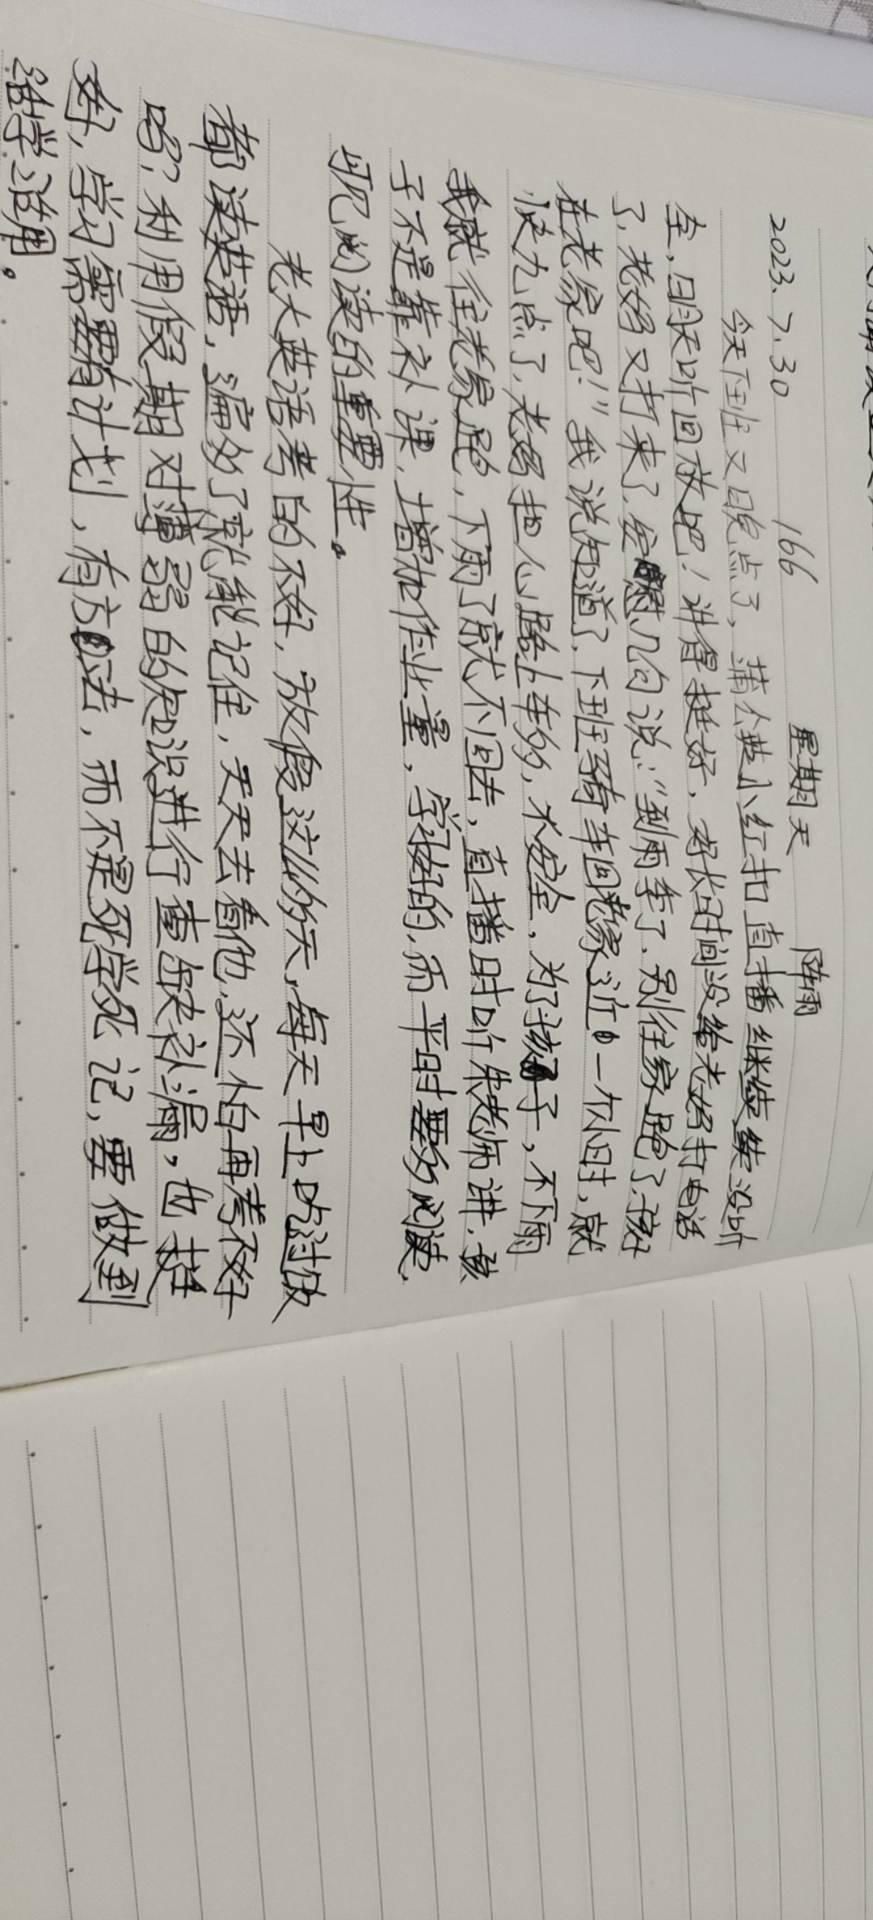 2023.7.30 166 星期天 阵雨
今天下班又晚点了，蒲公英小红扣直播继续没听
全，明天听回放吧！讲得挺好，好长时间没给老妈打电话
了，老妈又打来了，安慰几句说："到雨季了，别往家跑了，孩
在老家吧！"我说知道了，下班骑车回老家近一个小时，就
快九点了，老妈担心路上车多，不安全，为了孩子，不下雨
我就往老家跑，下雨了就不回去，直播时听朱老师讲，孩
子不是靠补课，增加作业量，学好的，而平时要多阅读，
可见阅读的重要性。
老大英语考的不好，放假这么多天，每天早上吃过饭
都读英语，遍多了就能记住，天天去看他，还怕再考不好
吗？利用假期对薄弱的知识进行查缺补漏，也挺
好，学习需要有计划，有方法，而不是死学死记，要做到
活学活用。